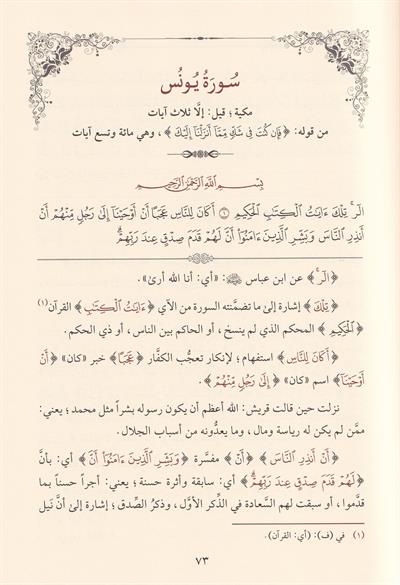 سُورَةُ يُونُس
مكية ؛ قيل: إلَّا ثلاث آيات
من قوله: ﴿فَإِن كُنتَ فِي شَكٍّ مِّمَّا أَنزَلْنَا إِلَيْكَ﴾ ، وهي مائة وتسع آيات
بِسْمِ اللَّهِ الرَّحْمَٰنِ الرَّحِيمِ
الٓر ۚ تِلْكَ ءَايَٰتُ الْكِتَٰبِ الْحَكِيمِ ۝١ أَكَانَ لِلنَّاسِ عَجَبًا أَنْ أَوْحَيْنَآ إِلَىٰ رَجُلٍ مِّنْهُمْ أَنْ
أَنذِرِ النَّاسَ وَبَشِّرِ الَّذِينَ ءَامَنُوٓا۟ أَنَّ لَهُمْ قَدَمَ صِدْقٍ عِندَ رَبِّهِمْ ۗ
﴿الٓر ۚ﴾ عن ابن عباس ﷺ: «أي: أنا الله أرىٰ».
﴿تِلْكَ﴾ إشارة إلىٰ ما تضمَّنته السورة من الآي ﴿ءَايَٰتُ الْكِتَٰبِ﴾ القرآن(١)
﴿الْحَكِيمِ﴾ المحكم الذي لم ينسخ ، أو الحاكم بين الناس ، أو ذي الحكم.
﴿أَكَانَ لِلنَّاسِ﴾ استفهام ؛ لإنكار تعجُّب الكفَّار ﴿عَجَبًا﴾ خبر «كان» ﴿أَنْ
أَوْحَيْنَآ﴾ اسم «كان» ﴿إِلَىٰ رَجُلٍ مِّنْهُمْ﴾.
نزلت حين قالت قريش: الله أعظم أن يكون رسوله بشراً مثل محمد ؛ يعني:
ممَّن لم يكن له رياسة ومال ، وما يعدُّونه من أسباب الجلال.
﴿أَنْ أَنذِرِ النَّاسَ﴾ ﴿أَنْ﴾ مفسَّرة ﴿وَبَشِّرِ الَّذِينَ ءَامَنُوٓا۟ أَنَّ﴾ أي: بأنَّ
﴿لَهُمْ قَدَمَ صِدْقٍ عِندَ رَبِّهِمْ ۗ﴾ أي: سابقة وأثرة حسنة ؛ يعني: أجراً حسناً بما
قدَّموا ، أو سبقت لهم السَّعادة في الذِّكر الأوَّل ، وذكرُ الصِّدق ؛ إشارة إلىٰ أنَّ نَيل
(١) في (ف): (أي: القرآن).
٧٣